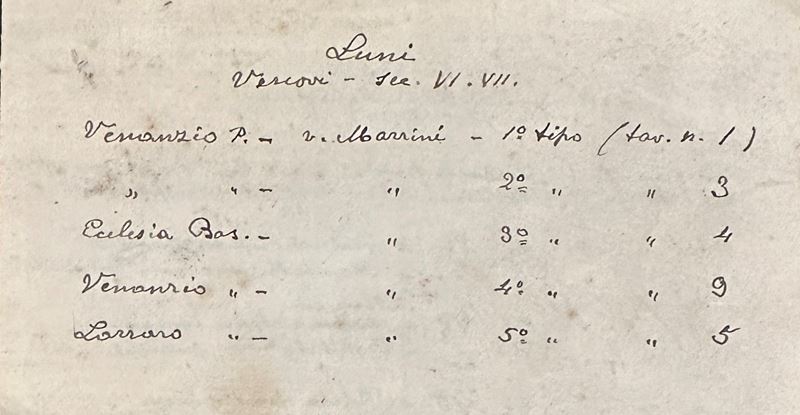 Luni
Vescovi - sec. VI. VII.
Venanzio P. - v. Marrini - 1º tipo (tav. n. 1)
„ „ - „ 2º „ „ 3
Ecclesia Bas. - „ 3º „ „ 4
Venanzio „ - „ 4º „ „ 9
Lazzaro „ - „ 5º „ „ 5